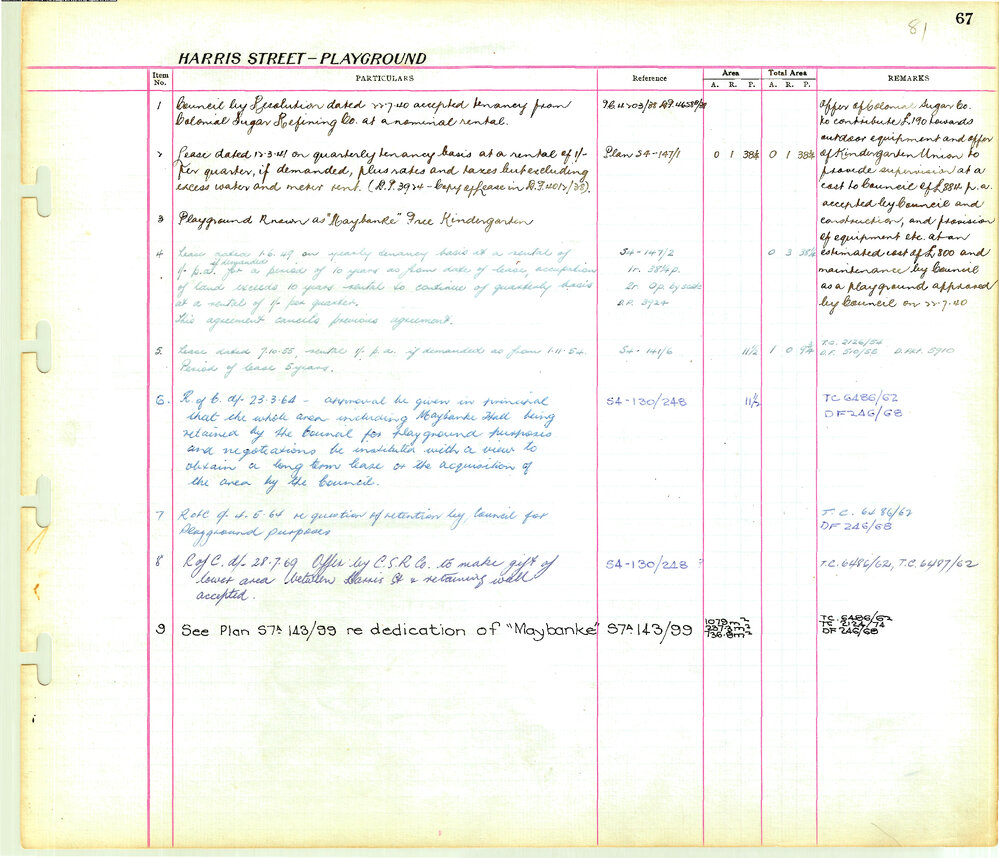 67
81
HARRIS STREET – PLAYGROUND
Item No.
PARTICULARS
Reference
Area
A. R. P.
Total Area
A. R. P.
REMARKS
1 Council by Resolution dated 22.7.40 accepted tenancy from
Colonial Sugar Refining Co. at a nominal rental.
2 Lease dated 12.3.41 on quarterly tenancy basis at a rental of 1/-
per quarter, if demanded, plus rates and taxes but excluding
excess water and meter rent. (D.P. 3924 - Copy of lease in D.P. 4012/38).
Plan S4-147/1
0 1 38¼
0 1 38¼
Offer of Colonial Sugar Co.
to contribute £190 towards
outdoor equipment and offer
of Kindergarten Union to
provide supervision at a
cost to Council of £884 p.a.
accepted by Council and
construction, and provision
of equipment etc. at an
estimated cost of £800 and
maintenance by Council
as a playground approved
by Council on 22.7.40
3 Playground Known as "Maybanke" Free Kindergarten
4 Lease dated 1.6.49 on yearly tenancy basis at a rental of
1/- p.a. if demanded for a period of 10 years as from date of lease, occupation
of land exceeds 10 years rental to continue of quarterly basis
at a rental of 1/- per quarter.
This agreement cancels previous agreement.
S4-147/2
1r. 38¼p.
2r. 0p. by scale
D.F. 3924
0 3 38¼
5. Lease dated 7.10.55, rental 1/- p.a. if demanded as from 1.11.54.
Period of lease 5 years.
S4-141/6
11½
1 0 9¾
T.C. 2126/54
D.F. 510/55 D.Pkt. 5910
6. R. of C. d/- 23.3.64 - approval be given in principal
that the whole area including Maybanke Hall being
retained by the Council for playground purposes
and negotiations be instituted with a view to
obtain a long term lease or the acquisition of
the area by the Council.
S4-130/248
11½
TC 6486/62
DF 246/68
7 R of C d/- 4.5.64 re question of retention by Council for
Playground purposes
T.C. 6486/62
DF 246/68
8 R of C. d/- 28.7.69 Offer by C.S.R Co. to make gift of
lower area between Harris St & retaining wall
accepted.
S4-130/248 ?
T.C. 6486/62, T.C. 6487/62
9 See Plan S7A 143/99 re dedication of "Maybanke"
S7A 143/99
TC. 6486/62
TC 2124/74
DF 246/68